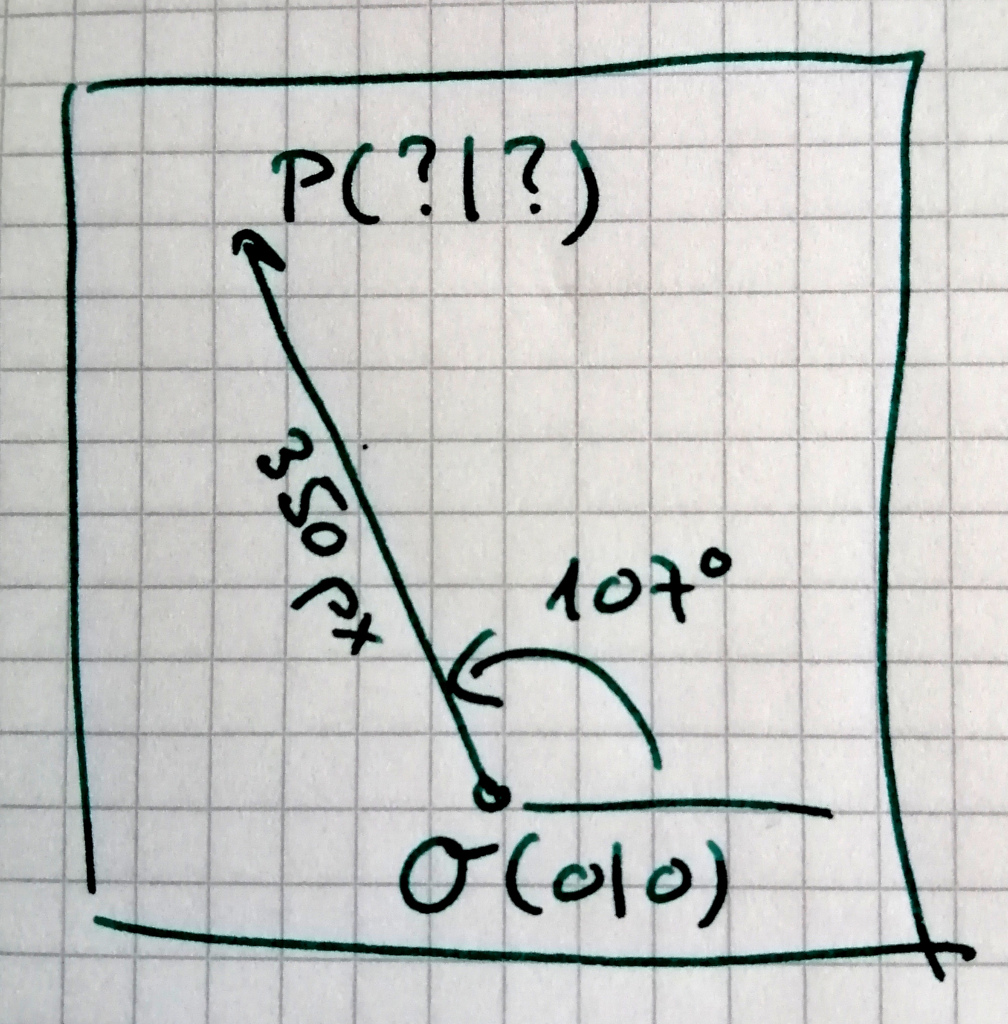 P(?|?)
350 px
107°
O(0|0)